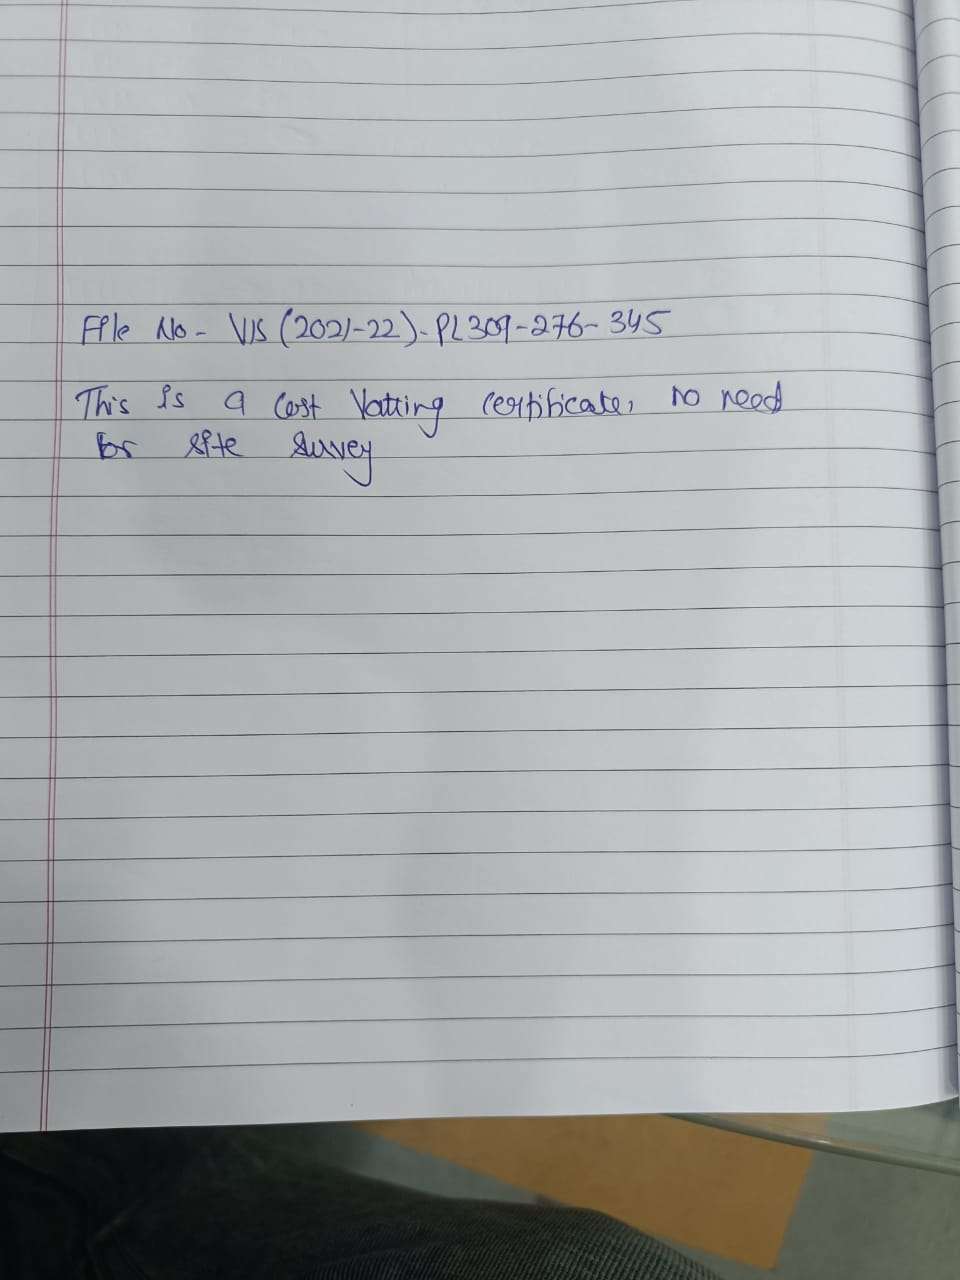 File No - VIS (2021-22)-PL309-276-345
This is a Cost Vatting certificate, no need
for site Survey